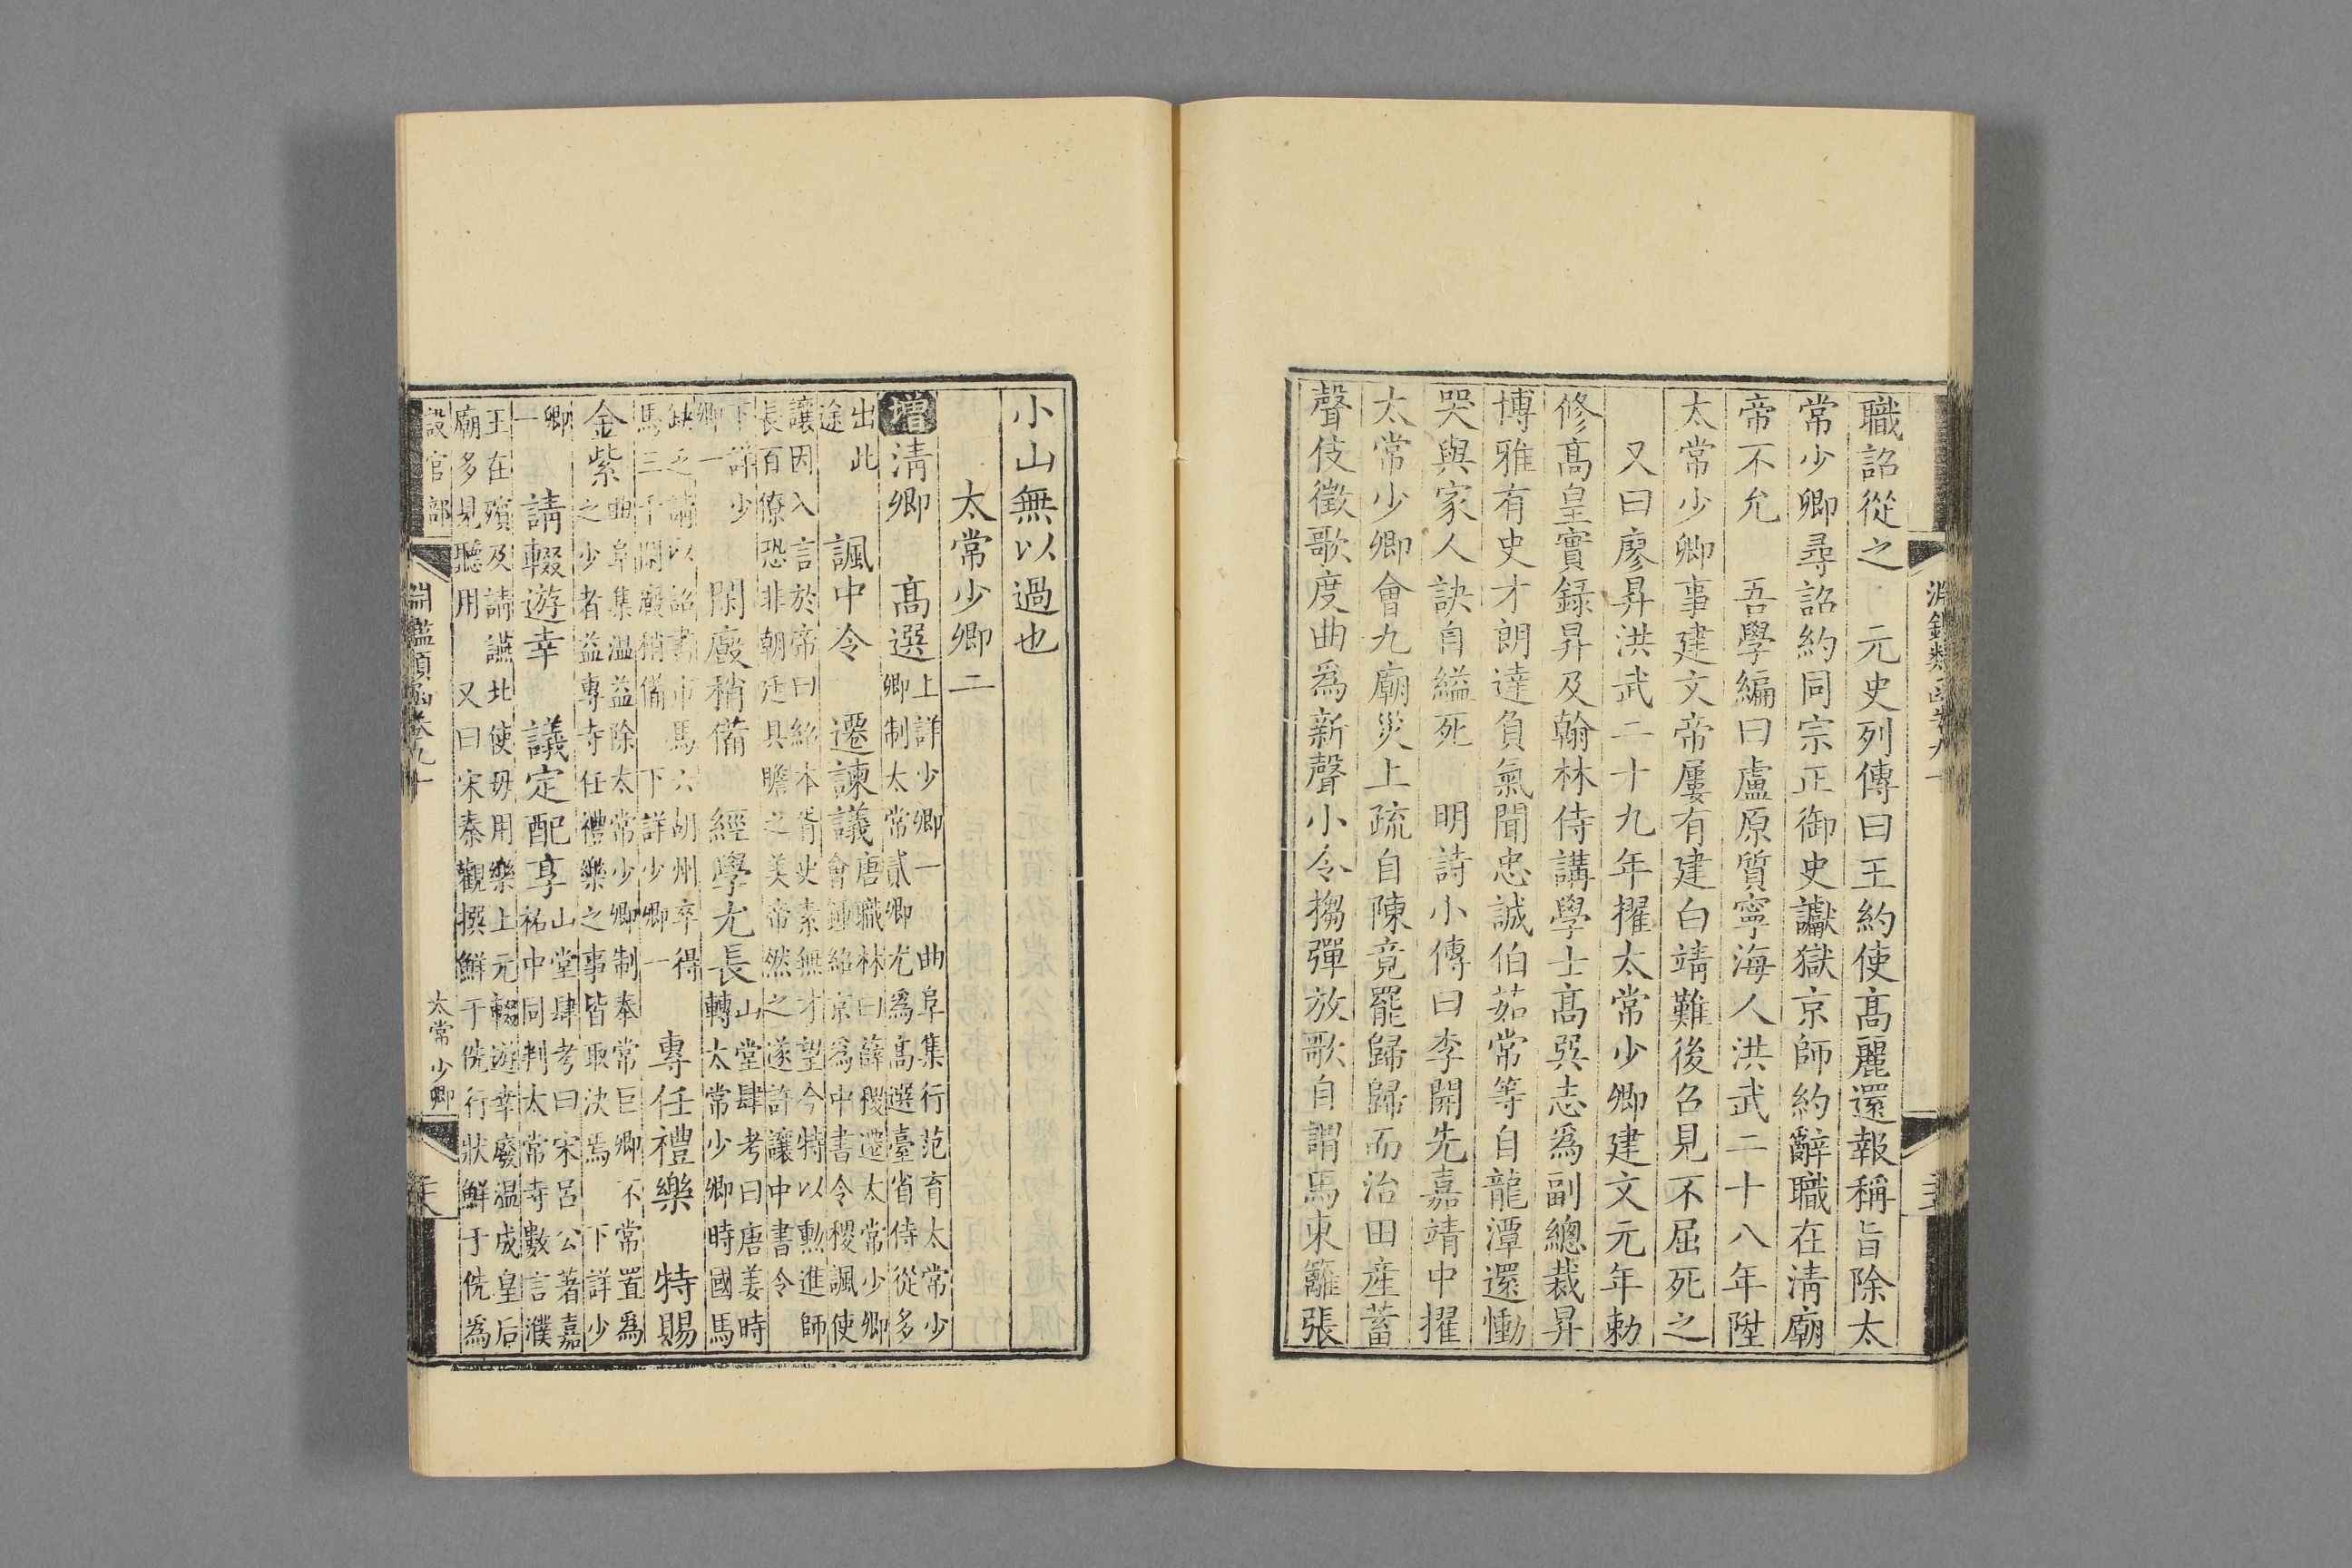 職詔從之　元史列傳曰王約使髙麗還報稱旨除太
常少卿尋詔約同宗正御史讞獄京師約辭職在淸廟
帝不允　吾學編曰盧原質寧海人洪武二十八年陞
太常少卿事建文帝屢有建白靖難後召見不屈死之
又曰廖昇洪武二十九年擢太常少卿建文元年勅
修髙皇實錄昇及翰林侍講學士髙巽志爲副總裁昇
博雅有史才朗達負氣聞忠誠伯茹常等自龍潭還慟
哭與家人訣自縊死　明詩小傳曰李開先嘉靖中擢
太常少卿會九廟災上疏自陳竟罷歸歸而治田産蓄
聲伎徵歌度曲爲新聲小令搊彈放歌自謂馬東籬張
小山無以過也
太常少卿二
增淸卿　髙選上詳少卿一　曲阜集行范育太常少
卿制太常貳卿尤爲髙選臺省侍從多
出此
途　諷中令　遷諫議唐職林曰薛稷遷太常少卿
會鍾紹京爲中書令稷諷使
讓因入言於帝曰紹本胥史素無才望今特以勲進師
長百僚恐非朝廷具瞻之美帝然之遂許讓中書令
下詳少
卿一　閑廏稍備　經學尤長山堂肆考曰唐姜時
轉太常少卿時國馬
缺乏請以詔書市馬六胡州卒得
馬三千閑廏稍備　下詳少卿一　專任禮樂　特賜
金紫曲阜集温益除太常少卿制奉常巨卿不常置爲
之少者益專寺任禮樂之事皆取決焉　下詳少
卿
一　請輟遊幸　議定配享山堂肆考曰宋呂公著嘉
祐中同判太常寺數言濮
王在殯及請讌北使毋用樂上元輟遊幸廢温成皇后
廟多見聽用　又曰宋秦觀撰鮮于侁行狀鮮于侁爲
設官部
淵鑑類函卷九十
太常少卿